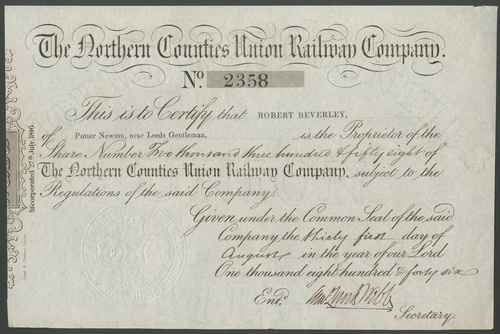 The Northern Counties Union Railway Company.
No. 2358
This is to Certify that ROBERT BEVERLEY,
of Potter Newton, near Leeds Gentleman, is the Proprietor of the
Share Number Two thousand three hundred & fifty eight of
The Northern Counties Union Railway Company, subject to the
Regulations of the said Company.
Given under the Common Seal of the said
Company the thirty first day of
August in the year of our Lord
One thousand eight hundred & forty six
Entd.
Secretary.
Incorporated 27th July, 1846.